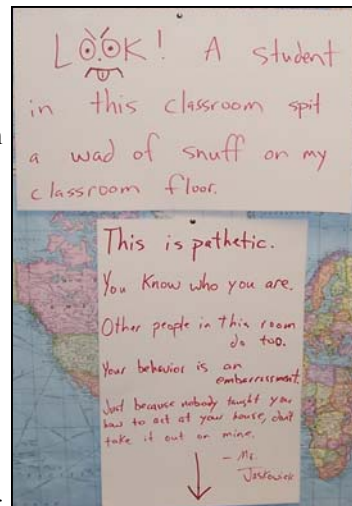 LOOK! A student
in this classroom spit
a wad of snuff on my
classroom floor.
This is pathetic.
You know who you are.
Other people in this room
do too.
Your behavior is an
embarrassment.
Just because nobody taught you
how to act at your house, don't
take it out on mine.
- Mr.
Jaskowick